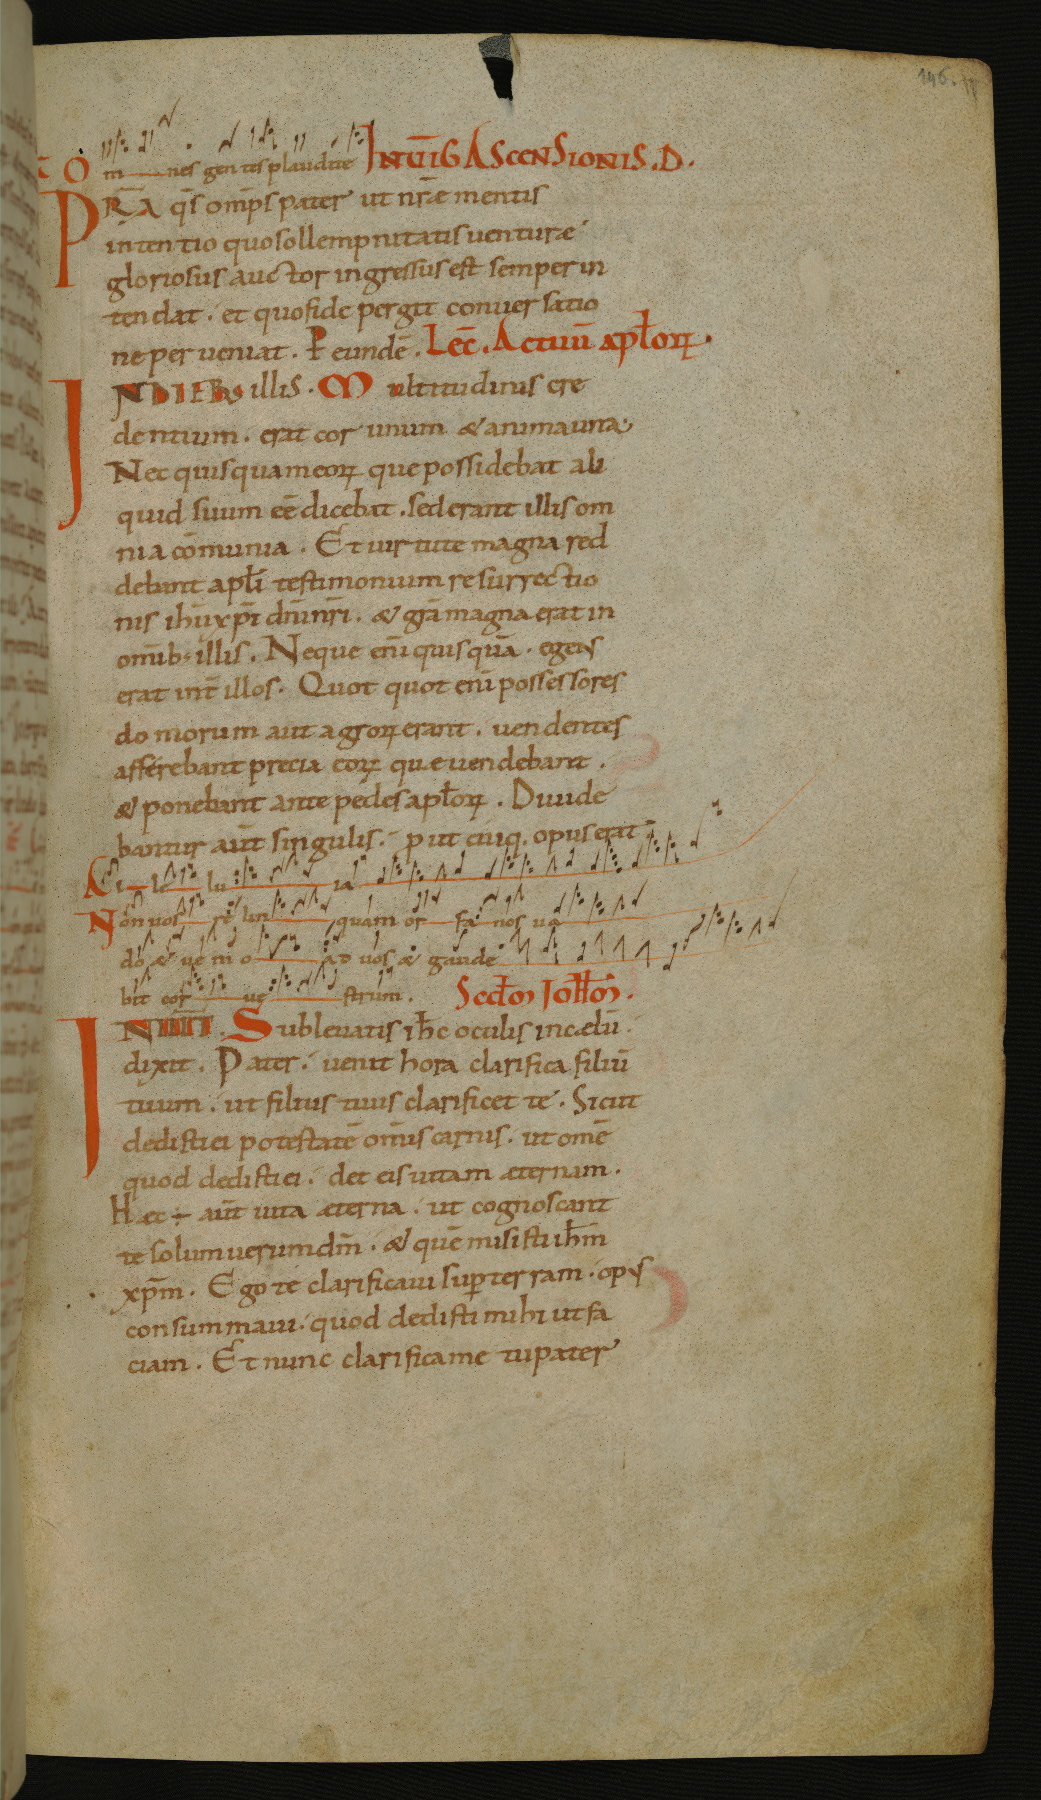 146.
O mnes gentes plaudite IN UIG ASCENSIONIS.D.
PRA q̄s om̄ps pater ut nr̄æ mentis
intentio quo sollempnitatis venturæ
gloriosus auctor ingressus est semper in
tendat. et quo fide pergit conversatio
ne perveniat. P eundē. Lec̄. Actuū apl̄orꝝ.
INDIEBUS illis. Multitudinis cre
dentium. erat cor unum & anima una.
Nec quisquam eorꝝ que possidebat ali
quid suum eē dicebat. sed erant illis om
nia cōmunia. Et virtute magna red
debant apl̄i testimonium resurrectio
nis ihū xp̄i dn̄i nr̄i. & gr̄a magna erat in
omīb; illis. Neque eni quisquā. egens
erat int̄ illos. Quot quot eni possessores
domorum aut agrorꝝ erant. vendentes
afferebant precia eorꝝ que vendebant.
& ponebant ante pedes apl̄orꝝ. Divide
bantur aut̄ singulis. put cuiq. opus erat
Al le lu ia
Non vos re lin quam or fa nos va
do & ve ni o ad vos & gaude
bit cor ve strum. Scd̄m Joh̄m.
IN ILL T. Sublevatis ih̄c oculis in cælū
dixit. Pater. venit hora clarifica filiū
tuum. ut filius tuus clarificet te. Sicut
dedisti ei potestatē om̄is carnis. ut omē
quod dedisti ei. det eis vitam æternam.
Hæc ÷ aut̄ vita æterna. ut cognoscant
te solum verum dm̄. & quē misisti ih̄m
xp̄m. Ego te clarificavi sup terram. opus
consummavi. quod dedisti mihi ut fa
ciam. Et nunc clarifica me tu pater